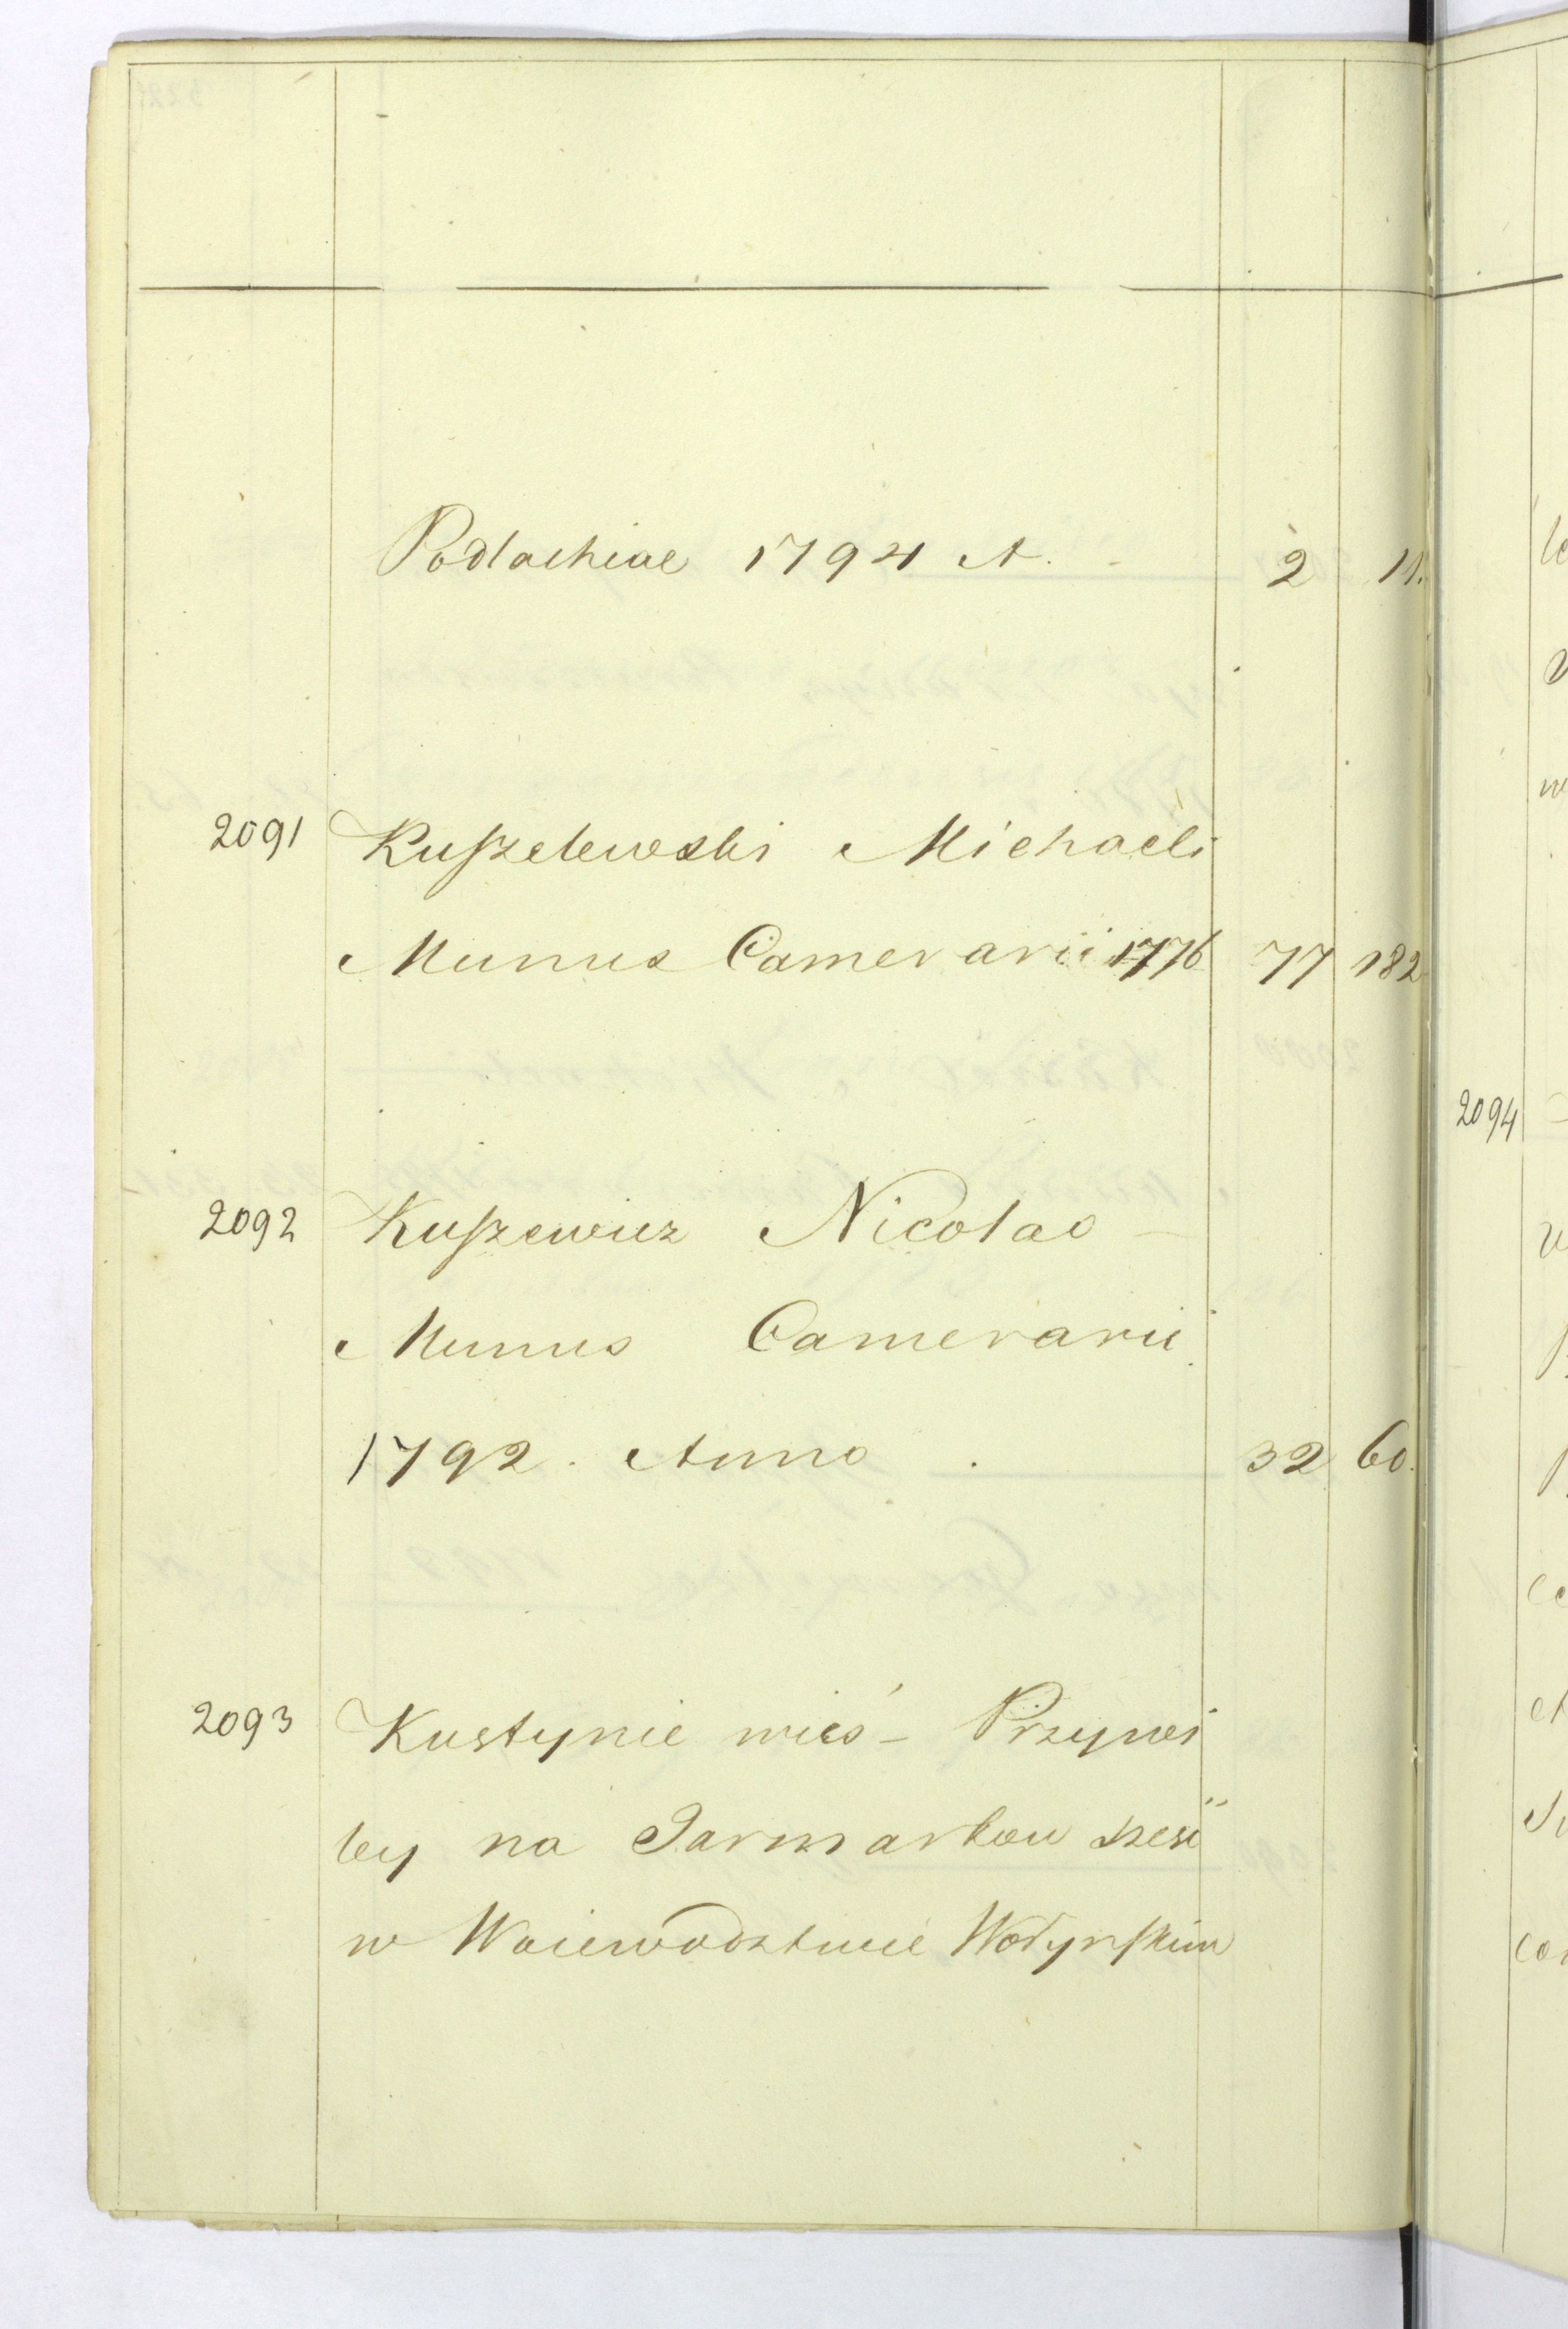 Podlachiae 1794 A. 2 11.
2091 Kuszelewski Michaeli
Munus Camerarii 1776 77 182
2092 Kuszewicz Nicolao
Munus Camerarii
1792. Anno 32 60.
2093 Kustynie wieś - Przywi
ley na Jarmarkow sześć
w Woiewodztwie Wołynskim
2094